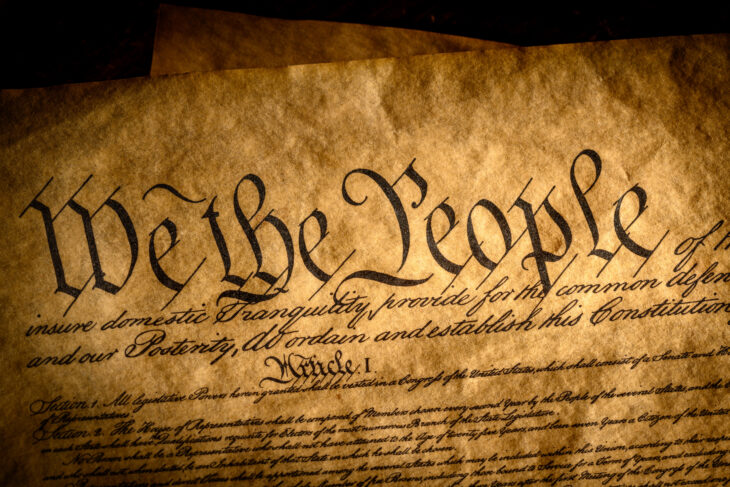 We the People of th
insure domestic Tranquility, provide for the common defen
and our Posterity, do ordain and establish this Constitution
Article. I.
Section. 1. All legislative Powers herein granted shall be vested in a Congress of the United States, which shall consist of a Senate and Ho
of Representatives.
Section. 2. The House of Representatives shall be composed of Members chosen every second Year by the People of the several States, and the
in each State shall have Qualifications requisite for Electors of the most numerous Branch of the State Legislature.
No Person shall be a Representative who shall not have attained to the Age of twenty five Years, and been seven Years a Citizen of the United
and who shall not, when elected, be an Inhabitant of that State in which he shall be chosen.
Representatives and direct Taxes shall be apportioned among the several States which may be included within this Union, according to their